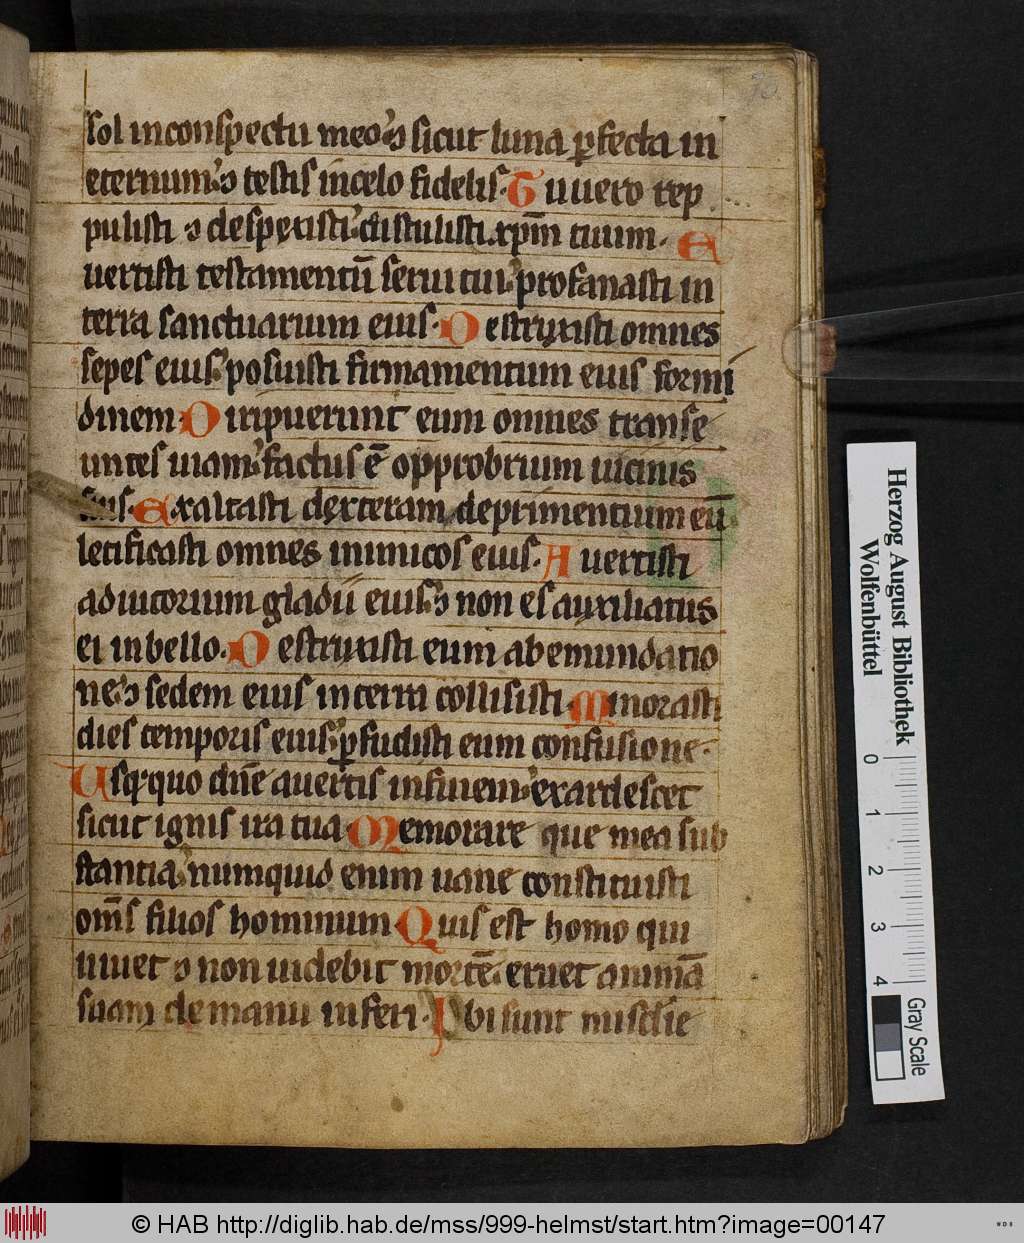 70.
sol in conspectu meo ⁊ sicut luna ꝑfecta in
eternum ⁊ testis in celo fidelis. Tu uero rep
pulisti ⁊ despexisti distulisti xp̄m tuum. E
uertisti testamentū serui tui profanasti in
terra sanctuarium eius. Destruxisti omnes
sepes eius posuisti firmamentum eius formi
dinem. Diripuerunt eum omnes transe
untes uiam factus ē opprobrium uicinis
suis. Exaltasti dexteram deprimentium eū
letificasti omnes inimicos eius. Auertisti
adiutorium gladii eius ⁊ non es auxiliatus
ei in bello. Destruxisti eum ab emundatio
ne ⁊ sedem eius in terra collisisti. Minorasti
dies temporis eius ꝑfudisti eum confusione.
Usqꝫquo dn̄e auertis in finem exardescet
sicut ignis ira tua. Memorare que mea sub
stantia numquid enim uane constituisti
om̄s filios hominum. Quis est homo qui
uiuet ⁊ non uidebit mortē eruet animā
suam de manu inferi. Ubi sunt misc̄die
Herzog August Bibliothek
Wolfenbüttel
0 1 2 3 4
Gray Scale
© HAB http://diglib.hab.de/mss/999-helmst/start.htm?image=00147
WDB